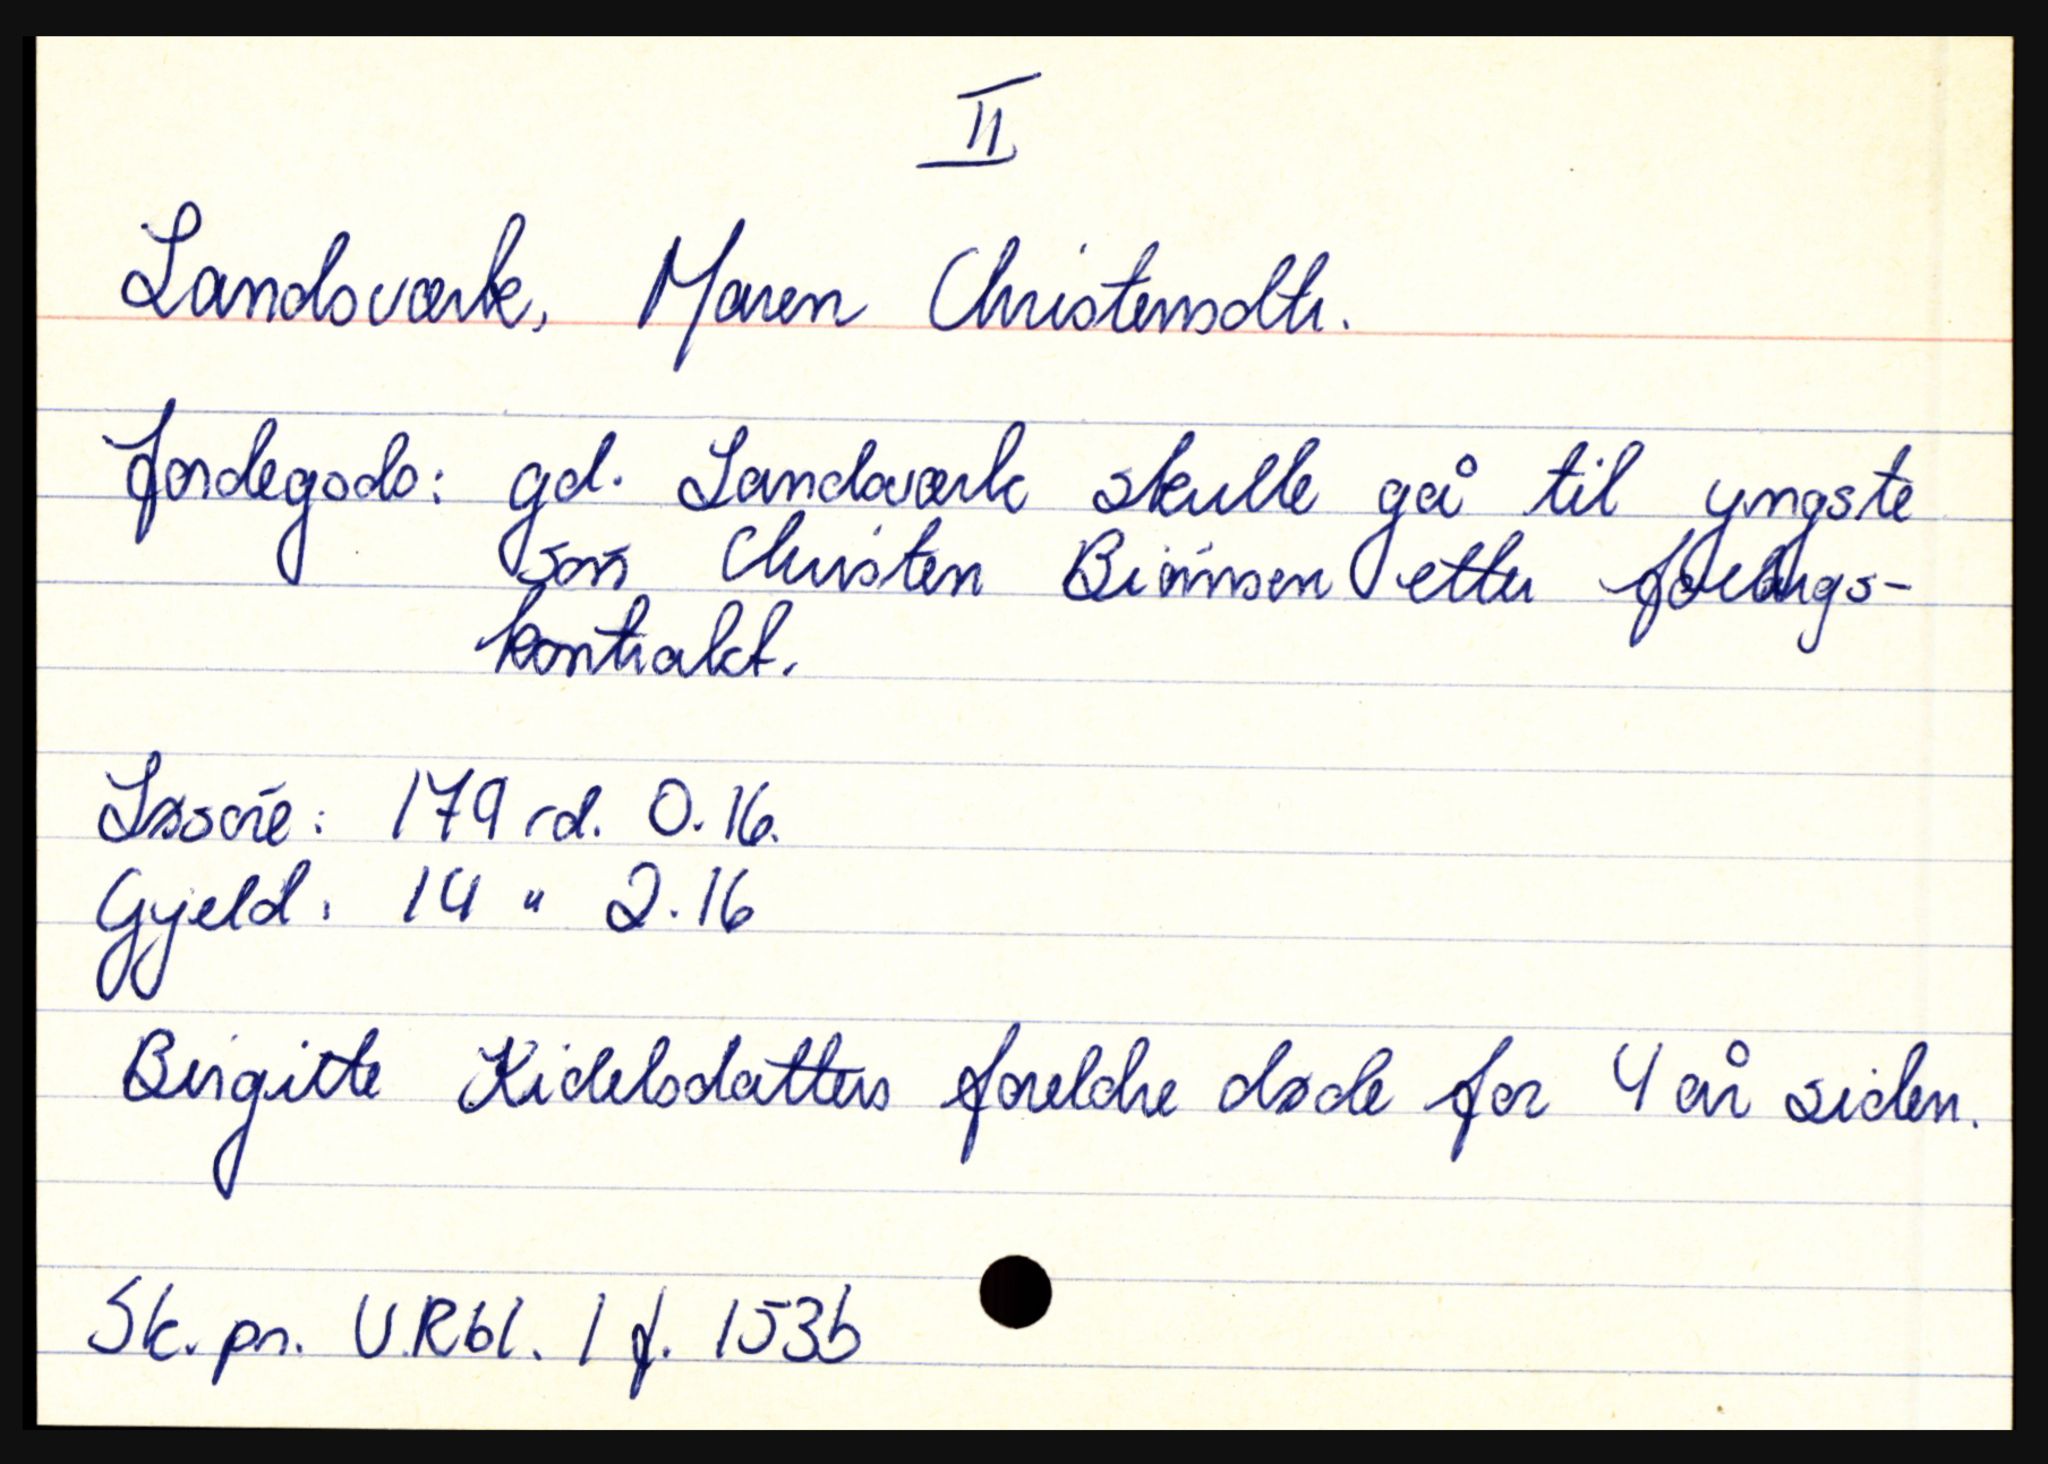 II
Landsværk, Maren Christensdtr.
Jordegods: gd. Landsværk skulle gå til yngste
søn Christen Biørnsen etter forlængs-
kontrakt.
Løsøre: 179 rd. 0.16.
Gjeld: 14 " 2.16
Birgitte Kidelsdatters foreldre døde for 4 år siden.
Sk. pr. U.Rbl. 1 f. 153b